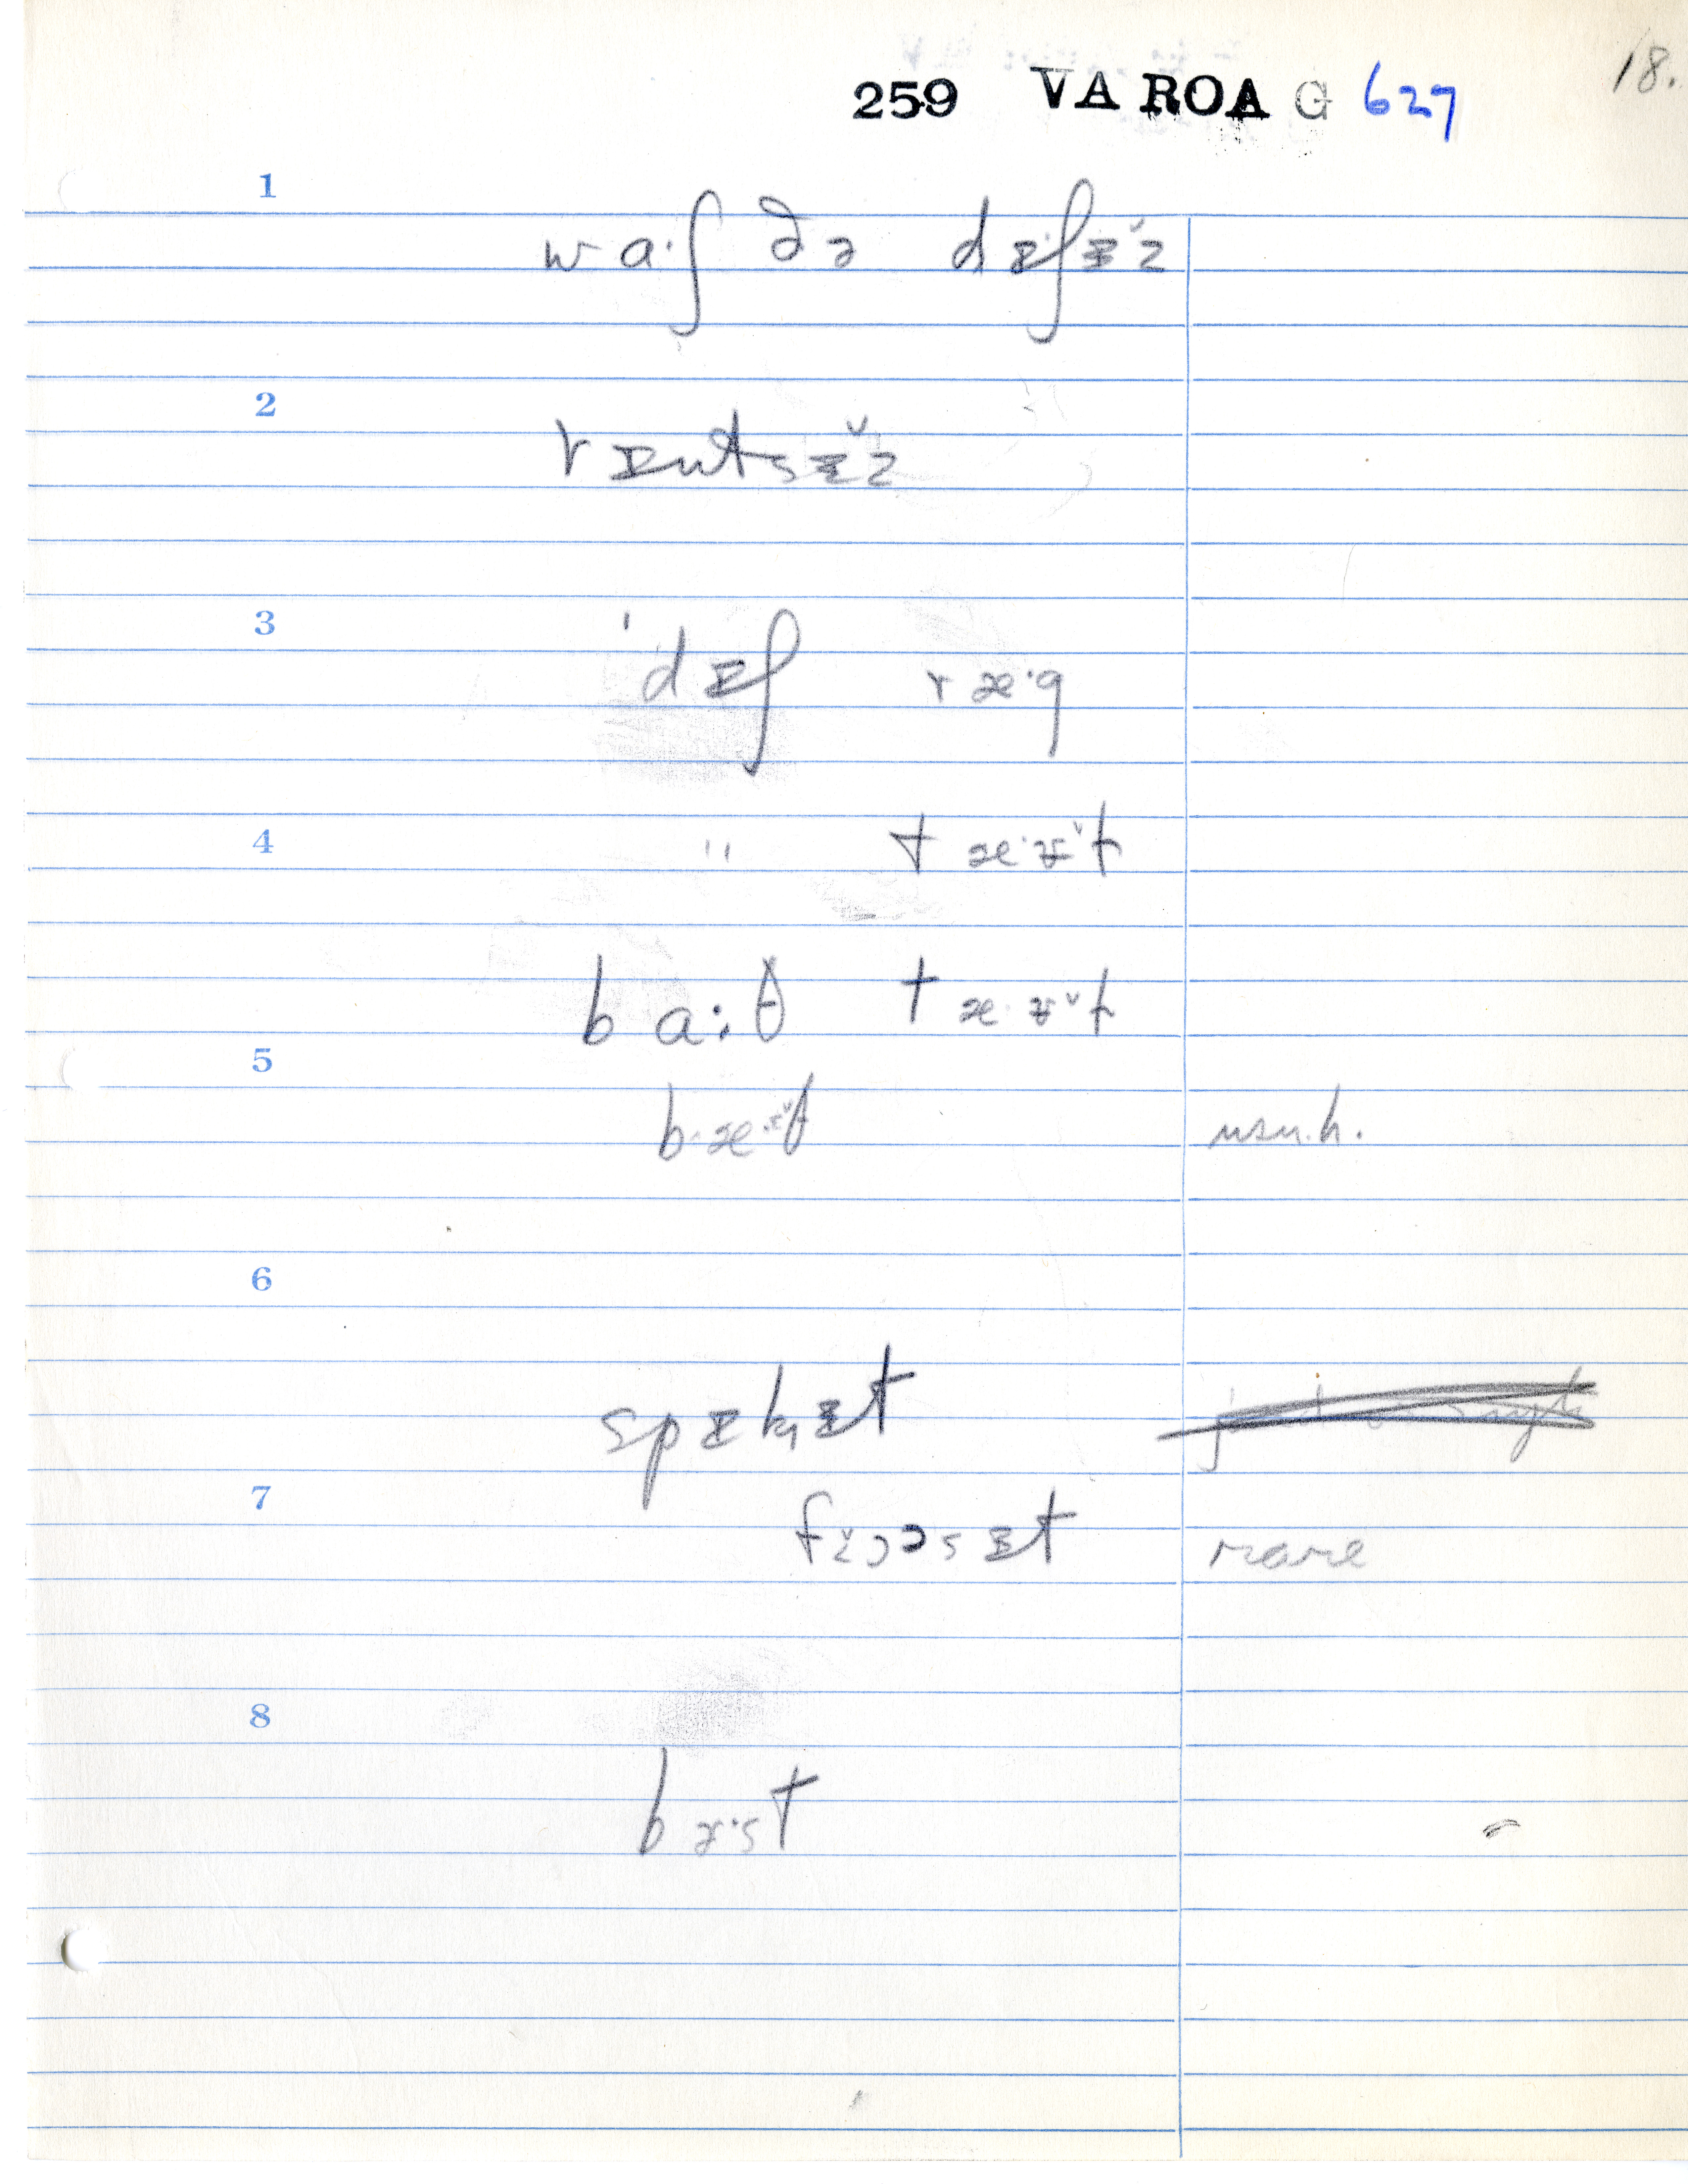 18.
259 VA ROA G 627
1
wa·ʃ ðə dɪʃɪ̆z
2
rɪntsɪ̆z
3
'dɪʃ ræ·g
4
" tæ·ɪ̆t
ba:θ tæ·ɪ̆t
5
bæ·ɪ̆θ usu. h.
6
spɪkɪt
7
fɔəsɪt rare
8
bɜ·st